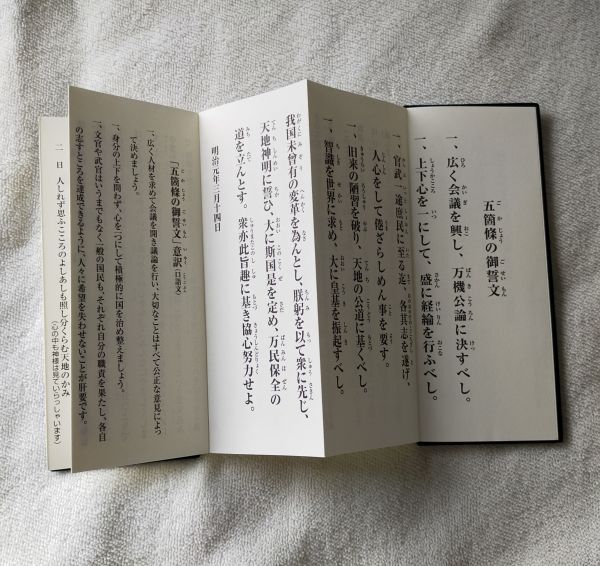 五箇條の御誓文
一、広く会議を興し、万機公論に決すべし。
一、上下心を一にして、盛に経綸を行ふべし。
一、官武一途庶民に至る迄、各其志を遂げ、
人心をして倦ざらしめん事を要す。
一、旧来の陋習を破り、天地の公道に基くべし。
一、智識を世界に求め、大に皇基を振起すべし。
我国未曾有の変革を為んとし、朕躬を以て衆に先じ、
天地神明に誓ひ、大に斯国是を定め、万民保全の
道を立んとす。衆亦此旨趣に基き協心努力せよ。
明治元年三月十四日
「五箇條の御誓文」意訳(口語文)
一、広く人材を求めて会議を開き議論を行い、大切なことはすべて公正な意見によっ
て決めましょう。
一、身分の上下を問わず、心を一つにして積極的に国を治め整えましょう。
一、文官や武官はいうまでもなく一般の国民も、それぞれ自分の職責を果たし、各自
の志すところを達成できるように、人々に希望を失わせないことが肝要です。
二日 人しれず思ふこころのよしあしも照し分くらむ天地のかみ
(心の中も神様は見ていらっしゃいます)